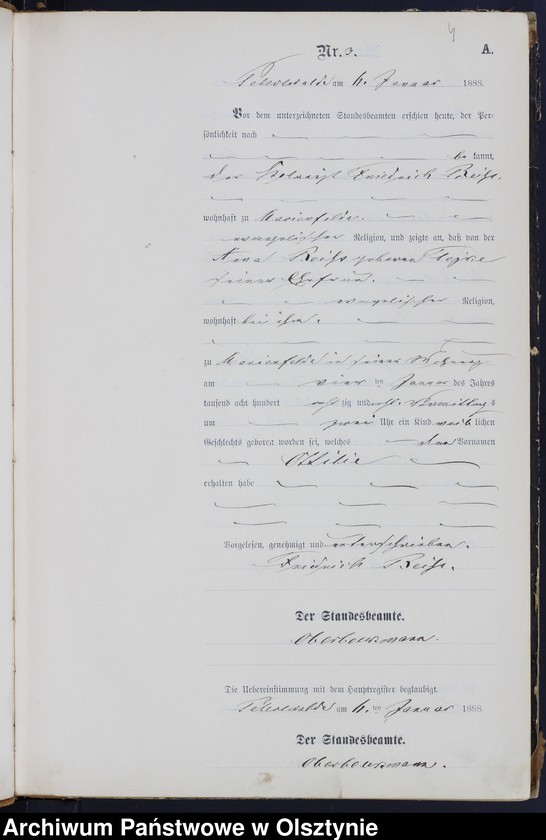 4
Nr. 3. A.
Peterswalde am 4. Januar 1888.
Vor dem unterzeichneten Standesbeamten erschien heute, der Per-
sönlichkeit nach
be kannt,
der Friedrich Reiß.
wohnhaft zu Marienfelde.
evangelischer Religion, und zeigte an, daß von der
Anna Reiß geborenen
seiner Ehefrau.
evangelischer Religion,
wohnhaft bei ihm.
zu Marienfelde in seiner Wohnung
am vier ten Januar des Jahres
tausend acht hundert acht zig und acht Vormittag s
um zwei Uhr ein Kind weib lichen
Geschlechts geboren worden sei, welches den Vornamen
Ottilie
erhalten habe
Vorgelesen, genehmigt und unterschrieben.
Friedrich Reiß.
Der Standesbeamte.
Die Uebereinstimmung mit dem Hauptregister beglaubigt.
Peterswalde am 4. ten Januar 1888.
Der Standesbeamte.
Archiwum Państwowe w Olsztynie